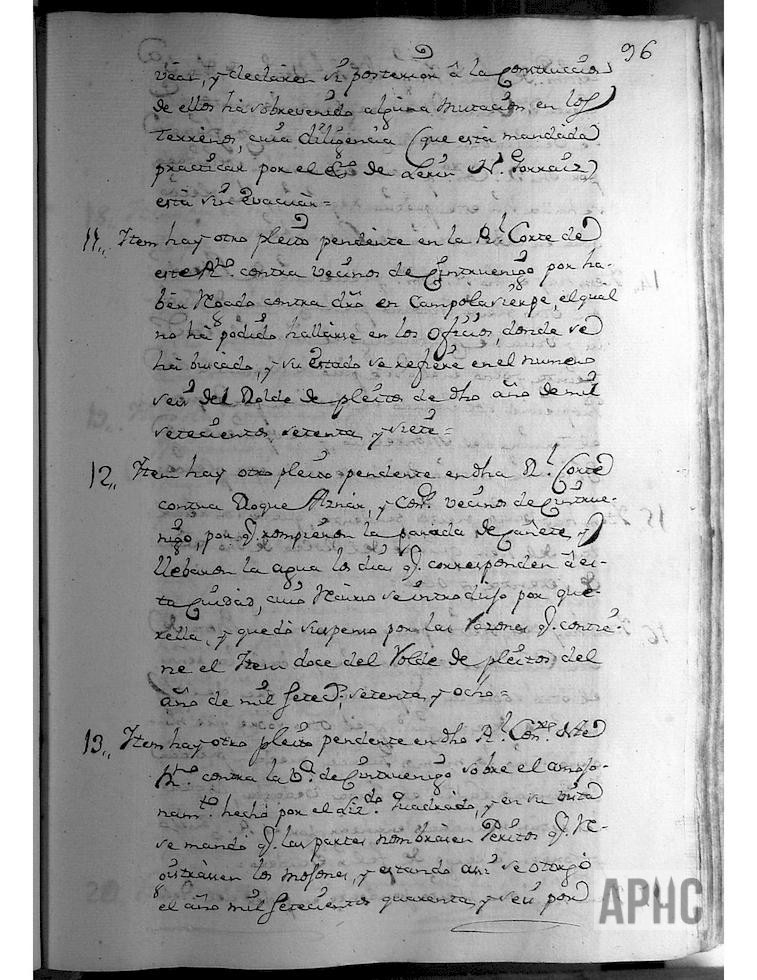 96
vean, y declaren si posterior â la Construccion
de ellos ha sobrevenido alguna mutacion en los
terrenos, cuia diligencia (que està mandada
practicar por el Ess.no de Lerin N. Gorraiz)
està sin Evacuàr=
11,, Item hay otro pleito pendente en la Rl. Corte de
este Rno. contra vecinos de Cintruenigo por ha-
bèr Rozado contra dro en Campolasierpe, el qual
no ha podido hallarse en los oficios, donde se
ha buscado, y su Estado se refiere en el numero
seis del Rolde de pleitos de dho año de mil
setecientos, setenta, y siete=
12,, Item hay otro pleito pendente en dha Rl. Corte
contra Roque Aznàr, y Cons. vecinos de Cintrue-
nigo, por q. rompieron la parada de Cañete, y
llebaron la agua los dias q. corresponden à es-
ta Ciudad, cuio se introdujo por que-
rella, y quedò suspenso por las Razones q. contie-
ne el Item doce del Rolde de pleitos del
año de mil setecs. setenta, y ocho=
13,, Item hay otro pleito pendente en dho Rl. Con.
Rno. contra la Va. de Cintruenigo sobre el amojo-
namto. hecho por el Lizdo. Quadrado, y en su vista
se mandò q. las partes nombrasen Peritos q. Re-
gistràsen los mojones, y estando asi se otorgò
el año mil setecientos quarenta, y seis por
APHC